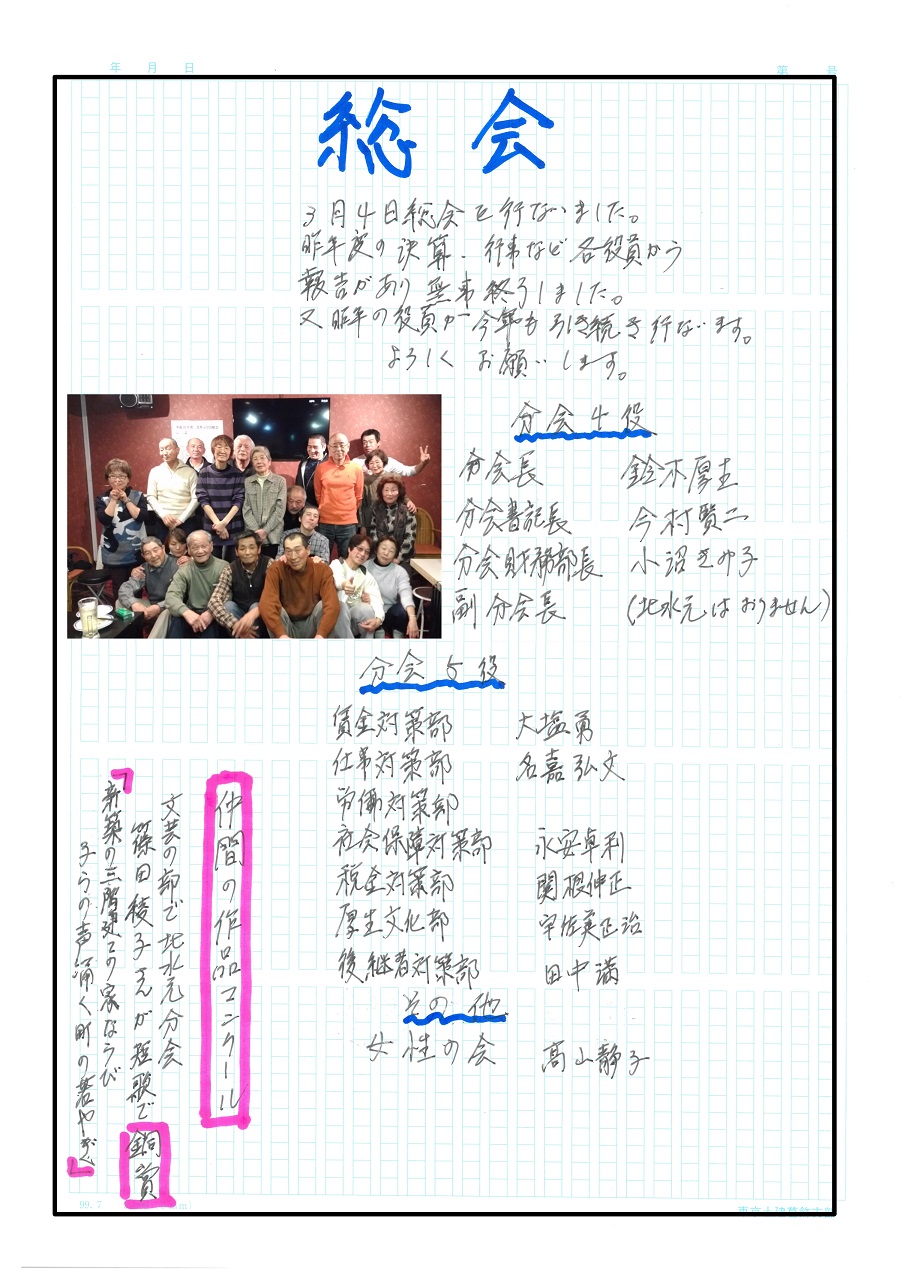 年 月 日
第 号
総会
3月4日総会を行ないました。
昨年度の決算、行事など各役員から
報告があり無事終了しました。
又昨年の役員が今年も引き続き行ないます。
よろしくお願いします。
分会4役
分会長 鈴木厚士
分会書記長 今村賢二
分会財務部長 小沼きみ子
副分会長 (北水元はおりません)
分会5役
賃金対策部 大塩勇
仕事対策部 名嘉弘文
労働対策部
社会保障対策部 永安卓利
税金対策部 関根伸正
厚生文化部 宇佐美正治
後継者対策部 田中満
その他
女性の会 高山静子
仲間の作品コンクール
文芸の部で北水元分会
篠田綾子さんが短歌で銅賞
「新築の三階建ての家ならび
子らの声涌く町の華やぎ」
99.7